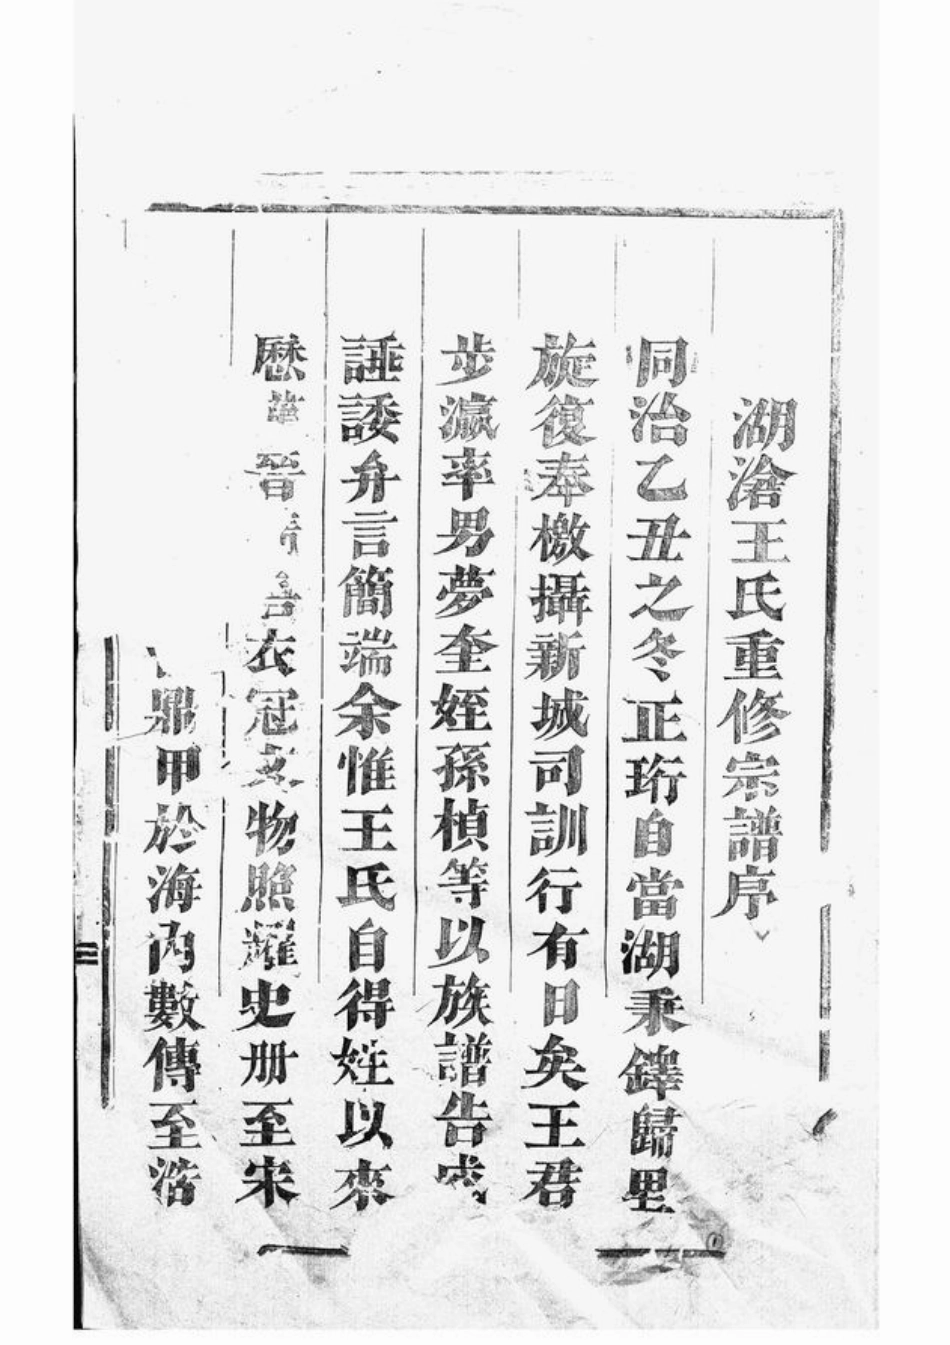 湖滄王氏重修宗譜序
同治乙丑之冬正珩自當湖秉鐸歸里
旋復奉檄攝新城司訓行有日矣王君
步瀛率男夢奎姪孫楨等以族譜告成
諈諉弁言簡端余惟王氏自得姓以來
歷 晉 衣冠文物照耀史册至宋
鼎甲於海內數傳至澔